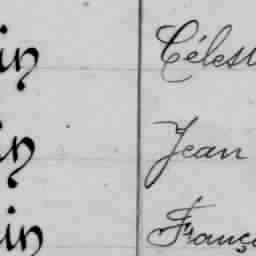 in Célest
in Jean
in Franç